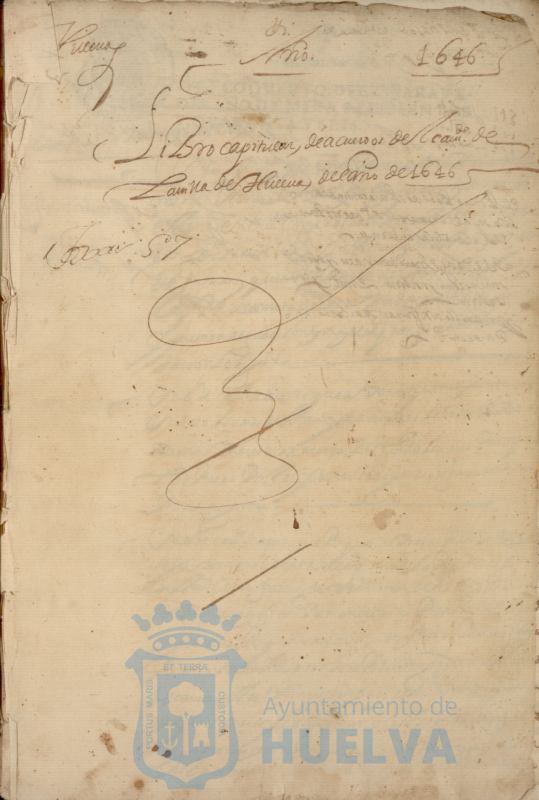 Huelva
Año. 1646
Libro capitular, de acuerdos de el cavdo. de
la villa de Huelva, de el año de 1646
N. 7
PORTUS MARIS
ET TERRÆ
CUSTODIA
Ayuntamiento de
HUELVA